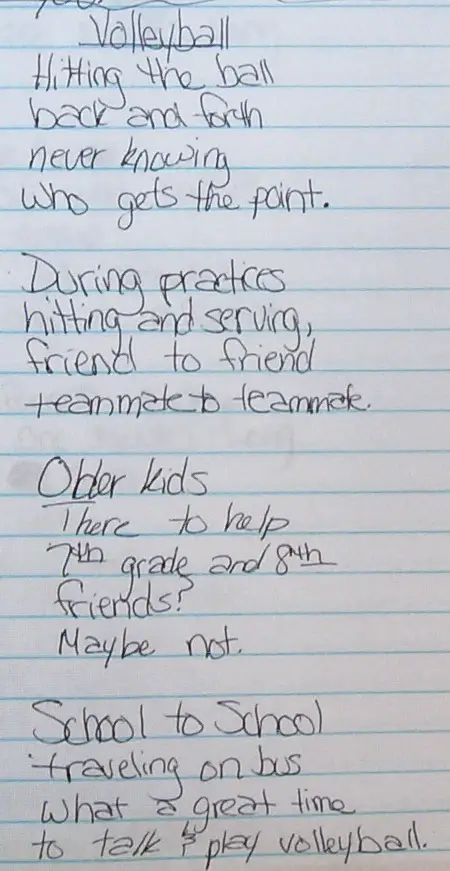 Volleyball
Hitting the ball
back and forth
never knowing
who gets the point.
During practices
hitting and serving,
friend to friend
teammate to teammate.
Older kids
There to help
7th grade and 8th
friends?
Maybe not.
School to School
traveling on bus
what a great time
to talk & play volleyball.